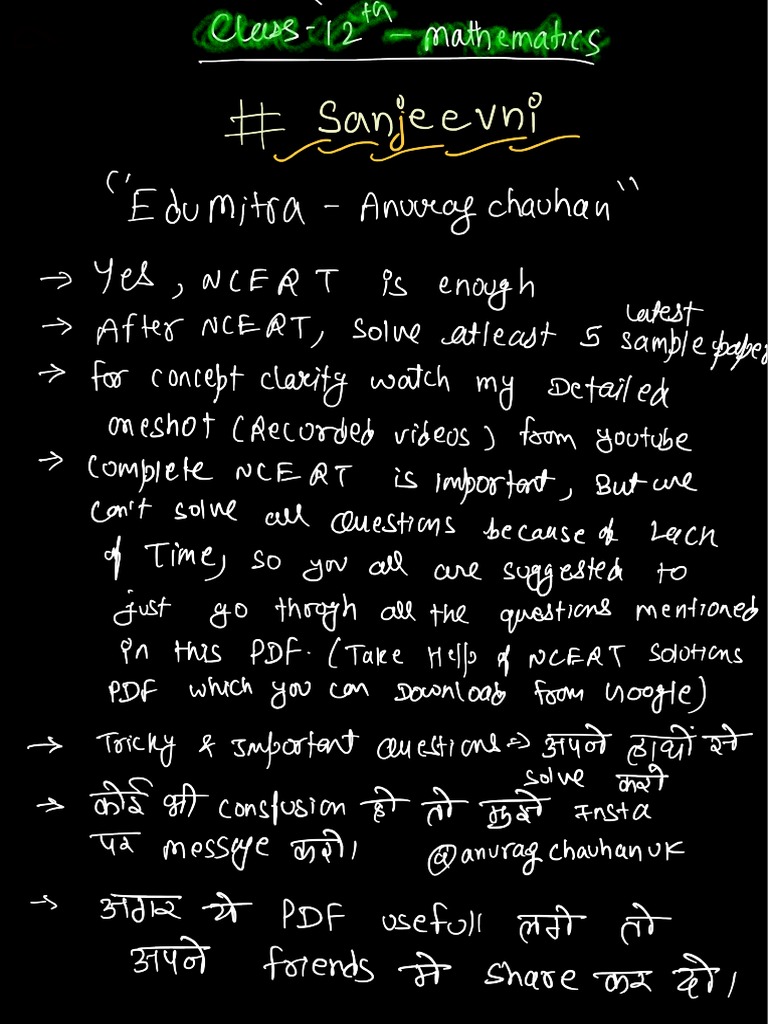 Class-12th - mathematics
# Sanjeevni
"Edumitra - Anurag chauhan"
→ Yes, NCERT is enough
→ After NCERT, solve atleast 5 latest sample paper
→ for concept clarity watch my Detailed
oneshot (Recorded videos) from youtube
→ Complete NCERT is important, But we
can't solve all Questions because of Lack
of Time, so you all are suggested to
just go throgh all the questions mentioned
in this PDF. (Take Help of NCERT solutions
PDF which you can Download from Google)
→ Tricky & Important Questions ⇒ अपने हाथों से
solve करो
→ कोई भी consfusion हो तो मुझे Insta
पर message करो। @anuragchauhanuk
→ अगर ये PDF usefull लगे तो
अपने friends मे share कर दो।